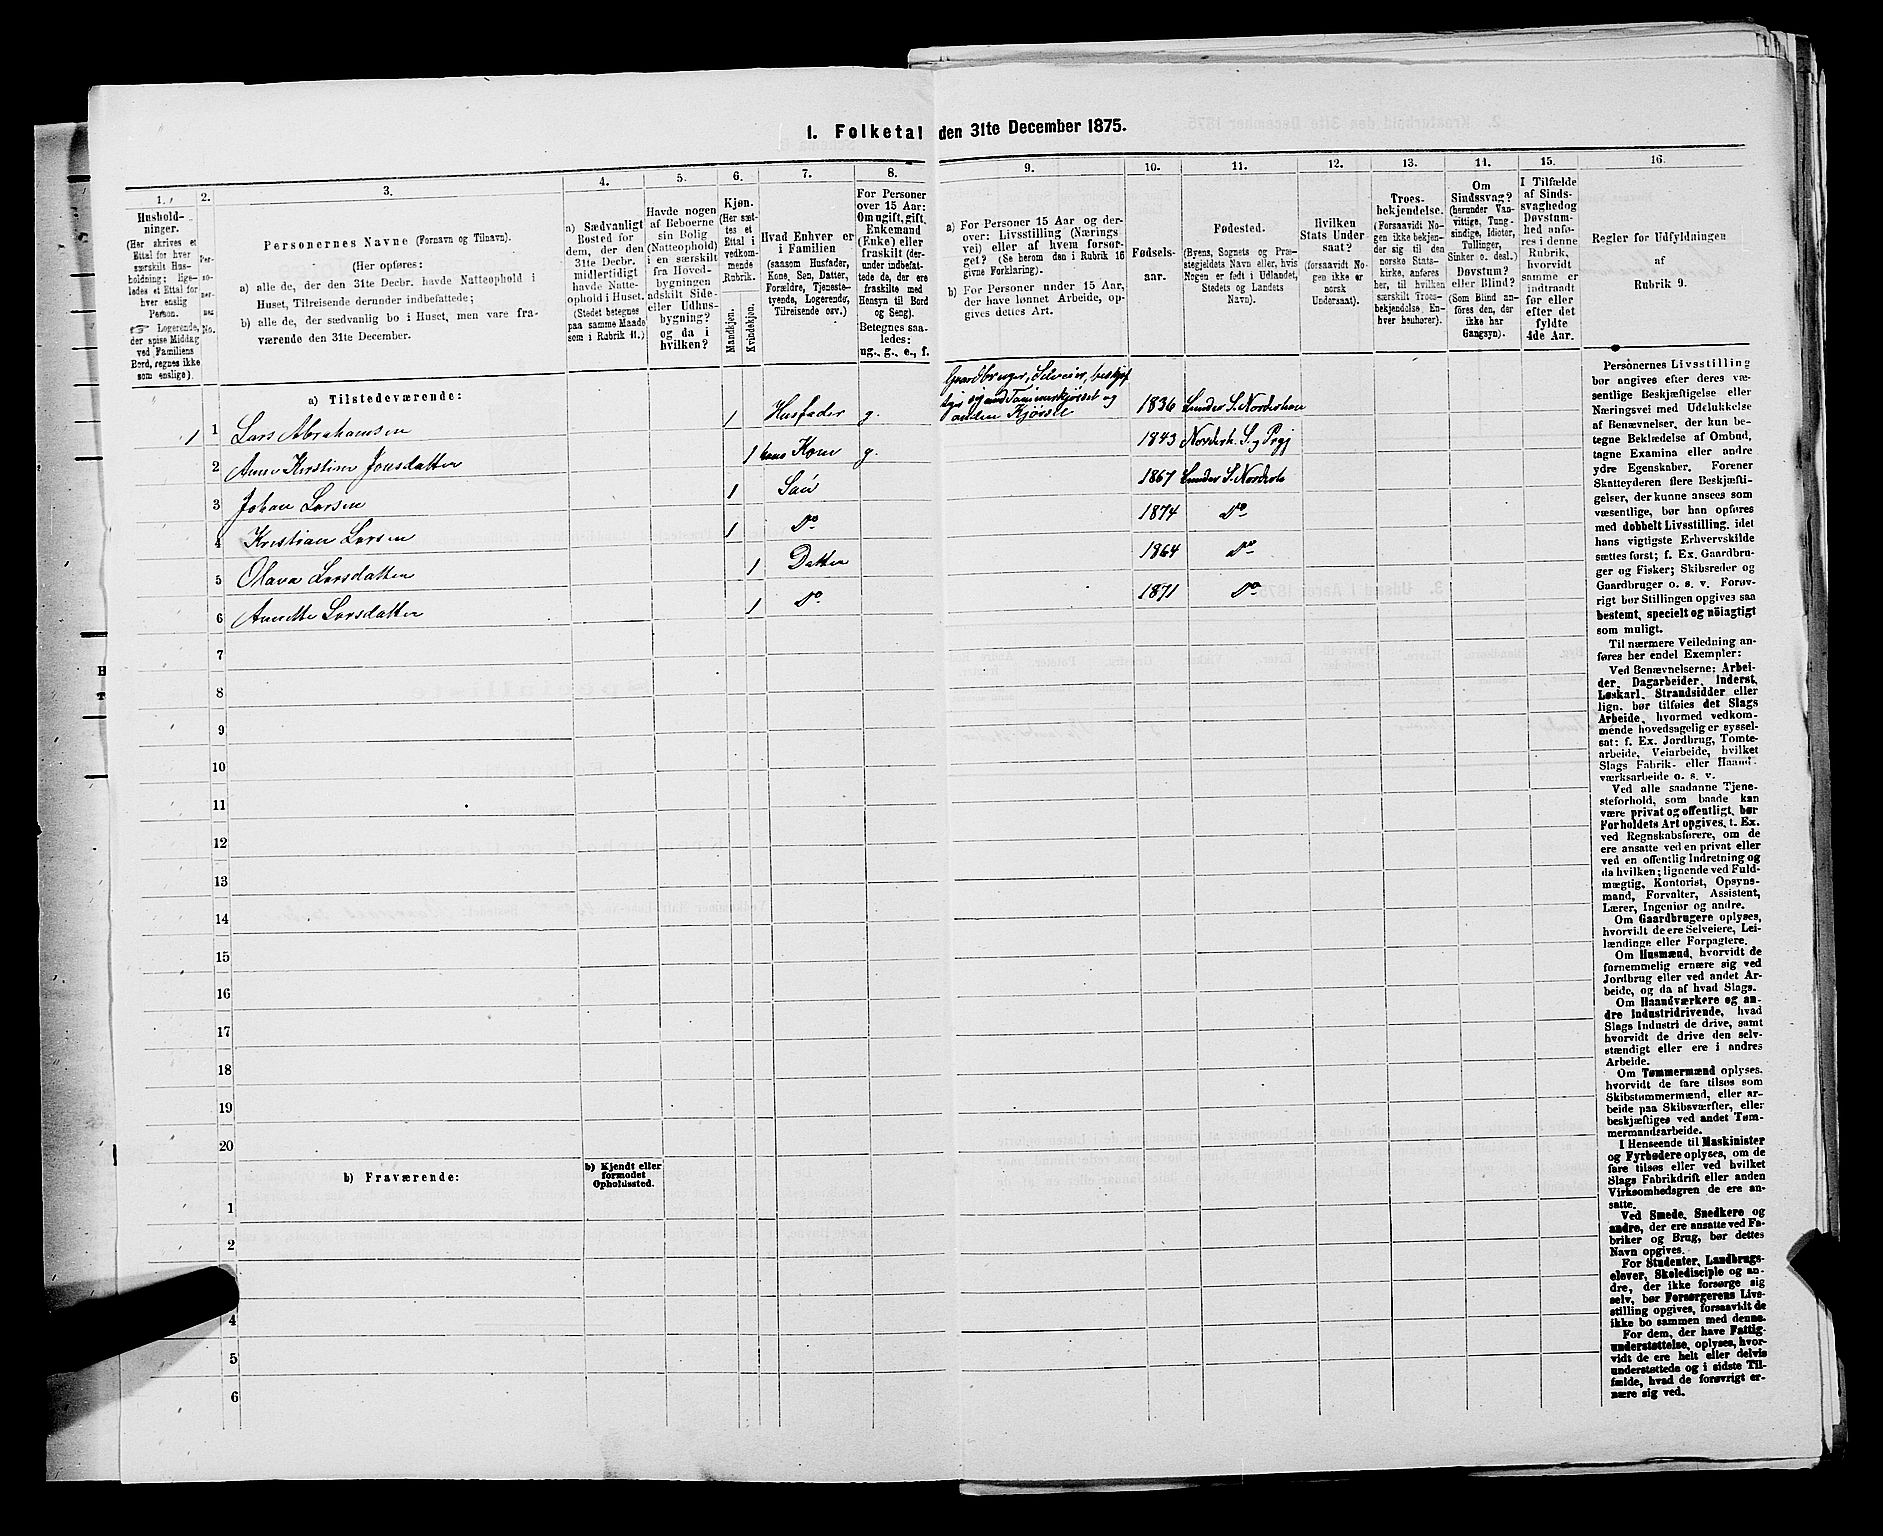 1. Folketal den 31te December 1875.
1.
2.
3.
4.
5.
6.
7.
8.
9.
10.
11.
12.
13.
14.
15.
16.
Hushold-
ninger.
(Her skrives et
Ettal for hver
særskilt Hus-
holdning; lige-
ledes et Ettal for
hver enslig
Person.
☞ Logerende,
der spise Middag
ved Familiens
Bord, regnes ikke
som enslige).
Per-
so-
ner-
nes
No.
Personernes Navne (Fornavn og Tilnavn).
(Her opføres:
a) alle de, der den 31te Decbr. havde Natteophold i
Huset, Tilreisende derunder indbefattede;
b) alle de, der sædvanlig bo i Huset, men vare fra-
værende den 31te December.
a) Sædvanligt
Bosted for
dem, der den
31te Decbr.
midlertidigt
havde Natte-
ophold i Huset.
(Stedet betegnes
paa samme Maade
som i Rubrik 11.)
Havde nogen
af Beboerne
sin Bolig
(Natteophold)
i en særskilt
fra Hoved-
bygningen
adskilt Side-
eller Udhus-
bygning?
og da i
hvilken?
Kjøn.
(Her sæt-
tes et
Ettal i
vedkom-
mende
Rubrik.
Mandkjøn.
Kvindekjøn.
Hvad Enhver er
i Familien
(saasom Husfader,
Kone, Søn, Datter,
Forældre, Tjeneste-
tyende, Logerende,
Tilreisende osv.)
For Personer
over 15 Aar:
Om ugift, gift,
Enkemand
(Enke) eller
fraskilt (der-
under indbefat-
tede de, der ere
fraskilte med
Hensyn til Bord
og Seng).
Betegnes saa-
ledes:
ug., g., e., f.
a) For Personer 15 Aar og der-
over: Livsstilling (Nærings
vei) eller af hvem forsør-
get? (Se herom den i Rubrik 16
givne Forklaring).
b) For Personer under 15 Aar,
der have lønnet Arbeide, op-
gives dettes Art.
Fødsels-
aar.
Fødested.
(Byens, Sognets og Præ-
stegjeldets Navn eller, hvis
Nogen er født i Udlandet,
Stedets og Landets
Navn).
Hvilken
Stats Under
saat?
(forsaavidt No-
gen ikke er
norsk
Undersaat).
Troes-
bekjendelse.
(Forsaavidt No-
gen ikke bekjen-
der sig til den
norske Stats-
kirke, anføres
her, til hvilken
særskilt Troes-
bekjendelse, En-
hver henhører).
Om
Sindssvag?
(herunder Van-
vittige, Tung-
sindige, Idioter,
Tullinger,
Sinker o. desl.)
Døvstum?
eller Blind?
(Som Blind an-
føres den, der
ikke har
Gangsyn).
I Tilfælde
af Sinds-
svaghedog
Døvstum-
hed anfø-
res i denne
Rubrik,
hvorvidt
samme er
indtraadt
før eller
efter det
fyldte
4de Aar.
Regler for Udfyldningen
af
Rubrik 9.
a) Tilstedeværende:
1 1 Lars Abrahamsen 1 Husfader g. Gaardbruger, Selveier, beskjæf
tiges og med Tømmerkjørsel og
anden Kjørsel 1836 Lunder S. Norderhou
2 Anne Kirstine Jonsdatter 1 hans Kone g. 1843 Norderh. S. og Prgj
3 Johan Larsen 1 Søn 1867 Lunder S. Norderh
4 Kristian Larsen 1 Do 1874 Do
5 Olava Larsdatter 1 Datter 1864 Do
6 Annette Larsdatter 1 Do. 1871 Do
7
8
9
10
11
12
13
14
15
16
17
18
19
20
b) Fraværende:
b) Kjendt eller
formodet
Opholdssted.
1
2
4
5
6
Personernes Livsstilling
bør angives efter deres væ-
sentlige Beskjæftigelse eller
Næringsvei med Udelukkelse
af Benævnelser, der kun be-
tegne Beklædelse af Ombud,
tagne Examina eller andre
ydre Egenskaber. Forener
Skatteyderen flere Beskjæfti-
gelser, der kunne ansees som
væsentlige, bør han opføres
med dobbelt Livsstilling, idet
hans vigtigste Erhvervskilde
sættes først; f. Ex. Gaardbru-
ger og Fisker; Skibsreder og
Gaardbruger o. s. v. Forøv-
rigt bør Stillingen opgives saa
bestemt, specielt og nöiagtigt
som muligt.
Til nærmere Veiledning an-
føres her endel Exempler:
Ved Benævnelserne: Arbei-
der, Dagarbeider, Inderst,
Løskarl, Strandsidder eller
lign. bør tilføies det Slags
Arbeide, hvormed vedkom-
mende hovedsagelig er syssel-
sat; f. Ex. Jordbrug, Tomte-
arbeide, Veiarbeide, hvilket
Slags Fabrik- eller Haand-
værksarbeide o. s. v.
Ved alle saadanne Tjene-
steforhold, som baade kan
være privat og offentligt, bør
Forholdets Art opgives, t. Ex.
ved Regnskabsførere, om de
ere ansatte ved en privat eller
ved en offentlig Indretning og
da hvilken; lignende ved Fuld-
mægtig, Kontorist, Opsyns-
mand, Forvalter, Assistent,
Lærer, Ingeniør og andre.
Om Gaardbrugere oplyses,
hvorvidt de ere Selveiere, Lei-
lændinge eller Forpagtere.
Om Husmænd, hvorvidt de
fornemmelig ernære sig ved
Jordbrug eller ved andet Ar-
beide, og da af hvad Slags.
Om Haandværkere og an-
dre Industridrivende, hvad
Slags Industri de drive, samt
hvorvidt de drive den selv-
stændigt eller ere i andres
Arbeide.
Om Tømmermænd oplyses,
hvorvidt de fare tilsøs som
Skibstømmermænd, eller ar-
beide paa Skibsværfter, eller
beskjæftiges ved andet Tøm-
mermandsarbeide.
I Henseende til Maskinister
og Fyrbødere oplyses, om de
fare tilsøs eller ved hvilket
Slags Fabrikdrift eller anden
Virksomhedsgren de ere an-
satte.
Ved Smede, Snedkere og
andre, der ere ansatte ved Fa-
briker og Brug, bør dettes
Navn opgives.
For Studenter, Landbrugs-
elever, Skoledisciple og an-
dre, der ikke forsørge sig
selv, bør Forsørgerens Livs-
stilling opgives, forsaavidt de
ikke bo sammen med denne.
For dem, der have Fattig-
understøttelse, oplyses, hvor-
vidt de ere helt eller delvis
understøttede og i sidste Til-
fælde, hvad de forøvrigt er-
nære sig ved.